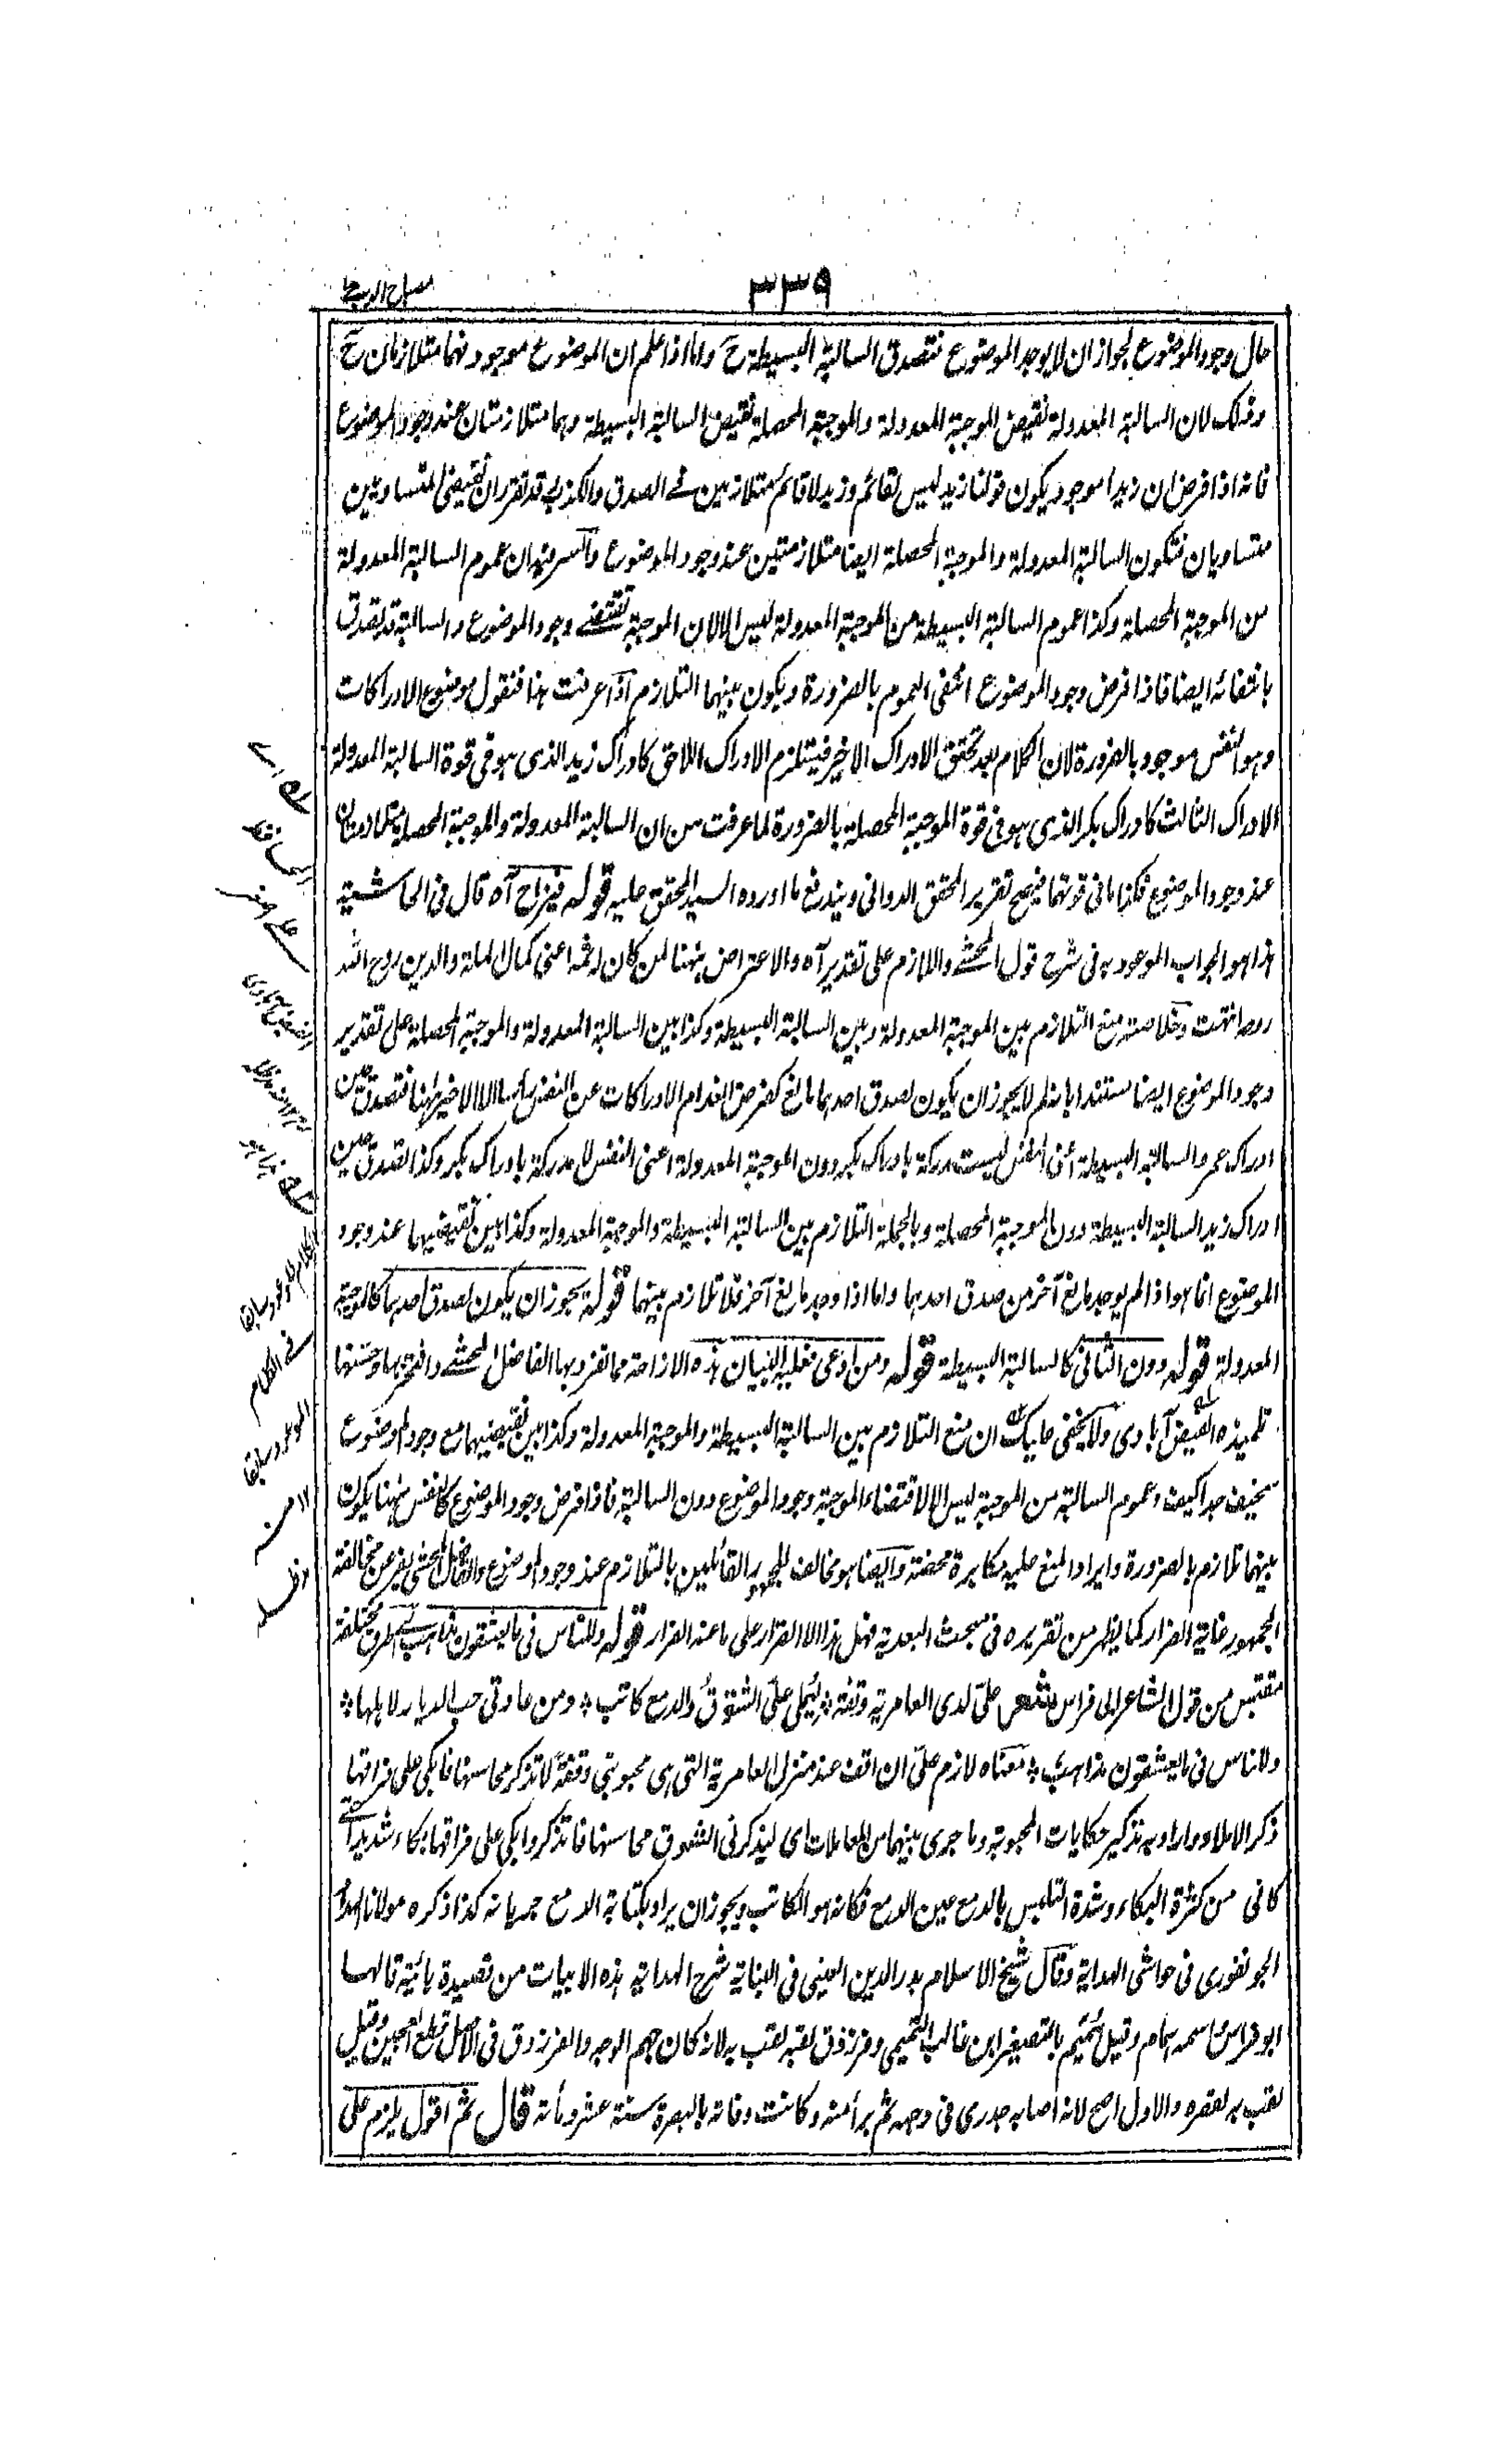 ٣٣٩
مصباح الدجى
حال وجود الموضوع لجواز ان لا يوجد الموضوع فتصدق السالبة البسيطة ح واما اذا علم ان الموضوع موجود فهما متلازمان ح
وذلك لان السالبة المعدولة نقيض الموجبة المعدولة والموجبة المحصلة نقيض السالبة البسيطة وهما متلازمتان عند وجود الموضوع
فانه اذا فرض ان زيدا موجود يكون قولنا زيد ليس بقائم وزيد لا قائم متلازمين في الصدق والكذب وقد تقرر ان نقيضي المتساويين
متساويان فتكون السالبة المعدولة والموجبة المحصلة ايضا متلازمتين عند وجود الموضوع والسر فيه ان عموم السالبة المعدولة
من الموجبة المحصلة وكذا عموم السالبة البسيطة من الموجبة المعدولة ليس الا لان الموجبة تقتضي وجود الموضوع والسالبة قد تصدق
بانتفائه ايضا فاذا فرض وجود الموضوع انتفى العموم بالضرورة ويكون بينهما التلازم اذا عرفت هذا فنقول موضوع الادراكات
وهو النفس موجود بالضرورة لان الكلام بعد تحقق الادراك الاخير فيستلزم الادراك اللاحق كادراك زيد الذى هو فى قوة السالبة المعدولة
الادراك الثالث كادراك بكر الذى هو فى قوة الموجبة المحصلة بالضرورة لما عرفت من ان السالبة المعدولة والموجبة المحصلة متلازمتان
عند وجود الموضوع فكذا ما فى قوتهما فيصح تقرير المحقق الدوانى ويندفع ما اورده السيد المحقق عليه قوله فيزاح آه قال فى الحاشية
هذا هو الجواب الموعود به فى شرح قول المحشي واللازم على تقدير آه والاعتراض ههنا لمن كان ارشد اعنى كمال الملة والدين روح الله
روحه انتهت وخلاصته منع التلازم بين الموجبة المعدولة وبين السالبة البسيطة وكذا بين السالبة المعدولة والموجبة المحصلة على تقدير
وجود الموضوع ايضا مستندا بانه لم لا يجوز ان يكون لصدق احدهما مانع كفرض انعدام الادراكات عن النفس باسرها الا الاخير ههنا فتصدق حين
ادراك عمرو السالبة البسيطة اعنى النفس ليست مدركة بادراك بكر دون الموجبة المعدولة اعنى النفس لا مدركة بادراك بكر وكذا تصدق حين
ادراك زيد السالبة البسيطة دون الموجبة المحصلة وبالجملة التلازم بين السالبة البسيطة والموجبة المعدولة وكذا بين نقيضيهما عند وجود
الموضوع انما هو اذا لم يوجد مانع آخر من صدق احدهما واما اذا وجد مانع آخر فلا تلازم بينهما قوله يجوز ان يكون لصدق احدهما كالموجبة
المعدولة قوله دون الثانى كالسالبة البسيطة قوله ومن ادعى فعليه البيان هذه الازاحة مما تفرد بها الفاضل المحشي وافتخر بها وحسنها
تلميذه الفيض آبادى ولا يخفى عليك ان منع التلازم بين السالبة البسيطة والموجبة المعدولة وكذا بين نقيضيهما مع وجود الموضوع
سخيف جدا كيف وعموم السالبة من الموجبة ليس الا لاقتضاء الموجبة وجود الموضوع دون السالبة فاذا فرض وجود الموضوع كالنفس ههنا يكون
بينهما تلازم بالضرورة وايراد المنع عليه مكابرة محضة وايضا هو مخالف للجمهور القائلين بالتلازم عند وجود الموضوع والفاضل المحشى يفر من مخالفة
الجمهور غاية الفرار كما يظهر من تقريره فى مبحث البعدية فهل هذا الا القرار على ما عنه الفرار قوله وللناس فى ما يعشقون مذاهب اى طرق مختلفة
مقتبس من قول الشاعر ابى فراس شعر علىّ لدى العامرية وقفة ۞ ليملى علىّ الشوق والدمع كاتب ۞ ومن عادتى حب الديار لاهلها ۞
وللناس فى ما يعشقون مذاهب ۞ معناه لازم علىّ ان اقف عند منزل العامرية التى هى محبوبتى وقفة لاتذكر محاسنها فابكى على فراقها
ذكر الاملاء واراد به تذكير حكايات المحبوبة وما جرى بينهما من المعاملات اى ليذكرنى الشوق محاسنها فاتذكر وابكى على فراقها بكاء شديدا
كانى من كثرة البكاء وشدة التلبس بالدمع عين الدمع فكانه هو الكاتب ويجوز ان يراد بكتابة الدمع جريانه كذا ذكره مولانا الهداد
الجونفورى فى حواشى الهداية وقال شيخ الاسلام بدر الدين العينى فى البناية شرح الهداية هذه الابيات من قصيدة بائية قالها
ابو فراس واسمه همام وقيل هميم بالتصغير ابن غالب التميمى وفرزدق لقبه لقب به لانه كان جهم الوجه والفرزدق فى الاصل قطع العجين وقيل
لقب به لقصره والاول اصح لانه اصابه جدرى فى وجهه ثم برأ منه وكانت وفاته بالبصرة سنة عشر ومأته قال ثم اقول يلزم على
الفيض آبادى
الكلام الموعود سابقا
في الكلام
الموعود سابقا
١٢ منه
مدظله